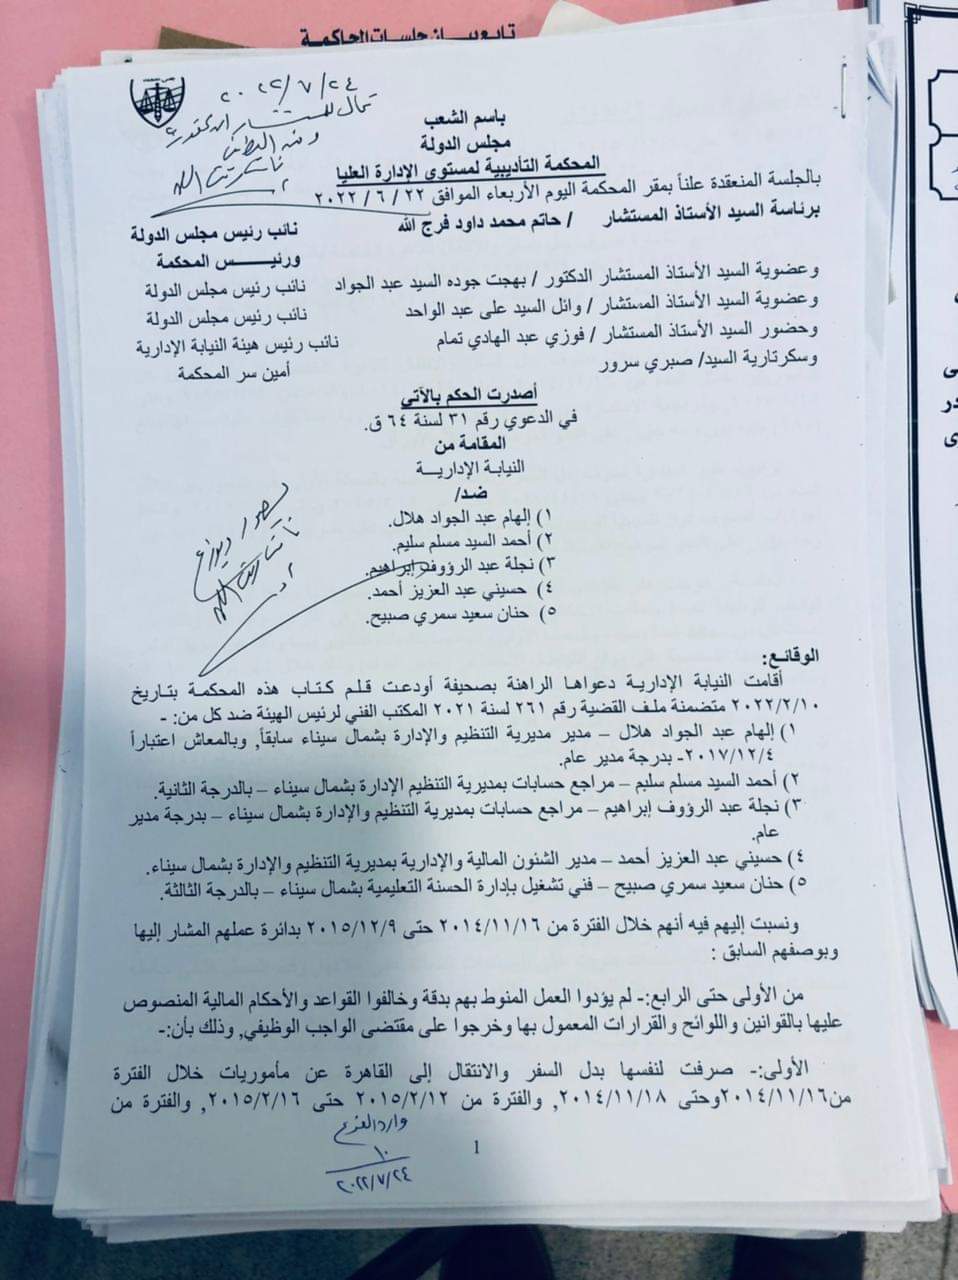 تابع بيان جلسات المحاكمة
٢٠٢٢/٧/٢٤
باسم الشعب
مجلس الدولة
المحكمة التأديبية لمستوى الإدارة العليا
بالجلسة المنعقدة علناً بمقر المحكمة اليوم الأربعاء الموافق ٢٢ / ٦ / ٢٠٢٢
برئاسة السيد الأستاذ المستشار / حاتم محمد داود فرج الله نائب رئيس مجلس الدولة
ورئيس المحكمة
وعضوية السيد الأستاذ المستشار الدكتور / بهجت جوده السيد عبد الجواد نائب رئيس مجلس الدولة
وعضوية السيد الأستاذ المستشار / وائل السيد على عبد الواحد نائب رئيس مجلس الدولة
وحضور السيد الأستاذ المستشار / فوزي عبد الهادي تمام نائب رئيس هيئة النيابة الإدارية
وسكرتارية السيد/ صبري سرور أمين سر المحكمة
أصدرت الحكم بالآتي
في الدعوي رقم ٣١ لسنة ٦٤ ق.
المقامة من
النيابة الإدارية
ضد/
١) إلهام عبد الجواد هلال.
٢) أحمد السيد مسلم سليم.
٣) نجلة عبد الرؤوف إبراهيم.
٤) حسيني عبد العزيز أحمد.
٥) حنان سعيد سمري صبيح.
الوقائع:
أقامت النيابة الإدارية دعواها الراهنة بصحيفة أودعت قلم كتاب هذه المحكمة بتاريخ
٢٠٢٢/٢/١٠ متضمنة ملف القضية رقم ٢٦١ لسنة ٢٠٢١ المكتب الفني لرئيس الهيئة ضد كل من: -
١) إلهام عبد الجواد هلال – مدير مديرية التنظيم والإدارة بشمال سيناء سابقاً, وبالمعاش اعتباراً
٢٠١٧/١٢/٤- بدرجة مدير عام.
٢) أحمد السيد مسلم سليم – مراجع حسابات بمديرية التنظيم الإدارة بشمال سيناء – بالدرجة الثانية.
٣) نجلة عبد الرؤوف إبراهيم – مراجع حسابات بمديرية التنظيم والإدارة بشمال سيناء – بدرجة مدير
عام.
٤) حسيني عبد العزيز أحمد – مدير الشئون المالية والإدارية بمديرية التنظيم والإدارة بشمال سيناء.
٥) حنان سعيد سمري صبيح – فني تشغيل بإدارة الحسنة التعليمية بشمال سيناء – بالدرجة الثالثة.
ونسبت إليهم فيه أنهم خلال الفترة من ٢٠١٤/١١/١٦ حتى ٢٠١٥/١٢/٩ بدائرة عملهم المشار إليها
وبوصفهم السابق :
من الأولى حتى الرابع:- لم يؤدوا العمل المنوط بهم بدقة وخالفوا القواعد والأحكام المالية المنصوص
عليها بالقوانين واللوائح والقرارات المعمول بها وخرجوا على مقتضى الواجب الوظيفي, وذلك بأن:-
الأولى:- صرفت لنفسها بدل السفر والانتقال إلى القاهرة عن مأموريات خلال الفترة
من٢٠١٤/١١/١٦وحتى ٢٠١٤/١١/١٨, والفترة من ٢٠١٥/٢/١٢ حتى ٢٠١٥/٢/١٦, والفترة من
1
١٠
٢٠٢٢/٧/٢٤